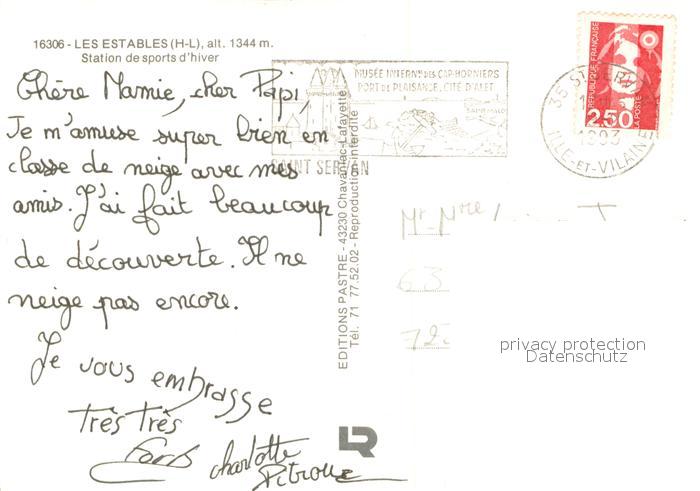 16306 - LES ESTABLES (H-L), alt. 1344 m.
Station de sports d'hiver
Chère Mamie, cher Papi,
Je m'amuse super bien en
classe de neige avec mes
amis. J'ai fait beaucoup
de découverte. Il ne
neige pas encore.
Je vous embrasse
très très
fort
charlotte
EDITIONS PASTRE - 43230 Chavaniac-Lafayette
Tél. 71 77.52.02 - Reproduction interdite
MUSÉE INTERN^al DES CAP-HORNIERS
PORT DE PLAISANCE, CITÉ D'ALET
SAINT SERVAN
35 ST SERVAN
1993
ILLE-ET-VILAINE
REPUBLIQUE FRANÇAISE
2,50
LA POSTE
Mr Mme
63
72
privacy protection
Datenschutz